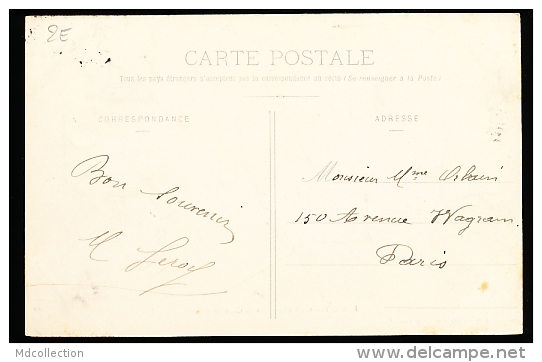 2E
CARTE POSTALE
Tous les pays étrangers n'acceptent pas la correspondance au recto (Se renseigner à la Poste)
CORRESPONDANCE
ADRESSE
Bon Souvenir
M Leroy
Monsieur Mme Orbain
150 Avenue Wagram
Paris
Mdcollection
www.delcampe.net